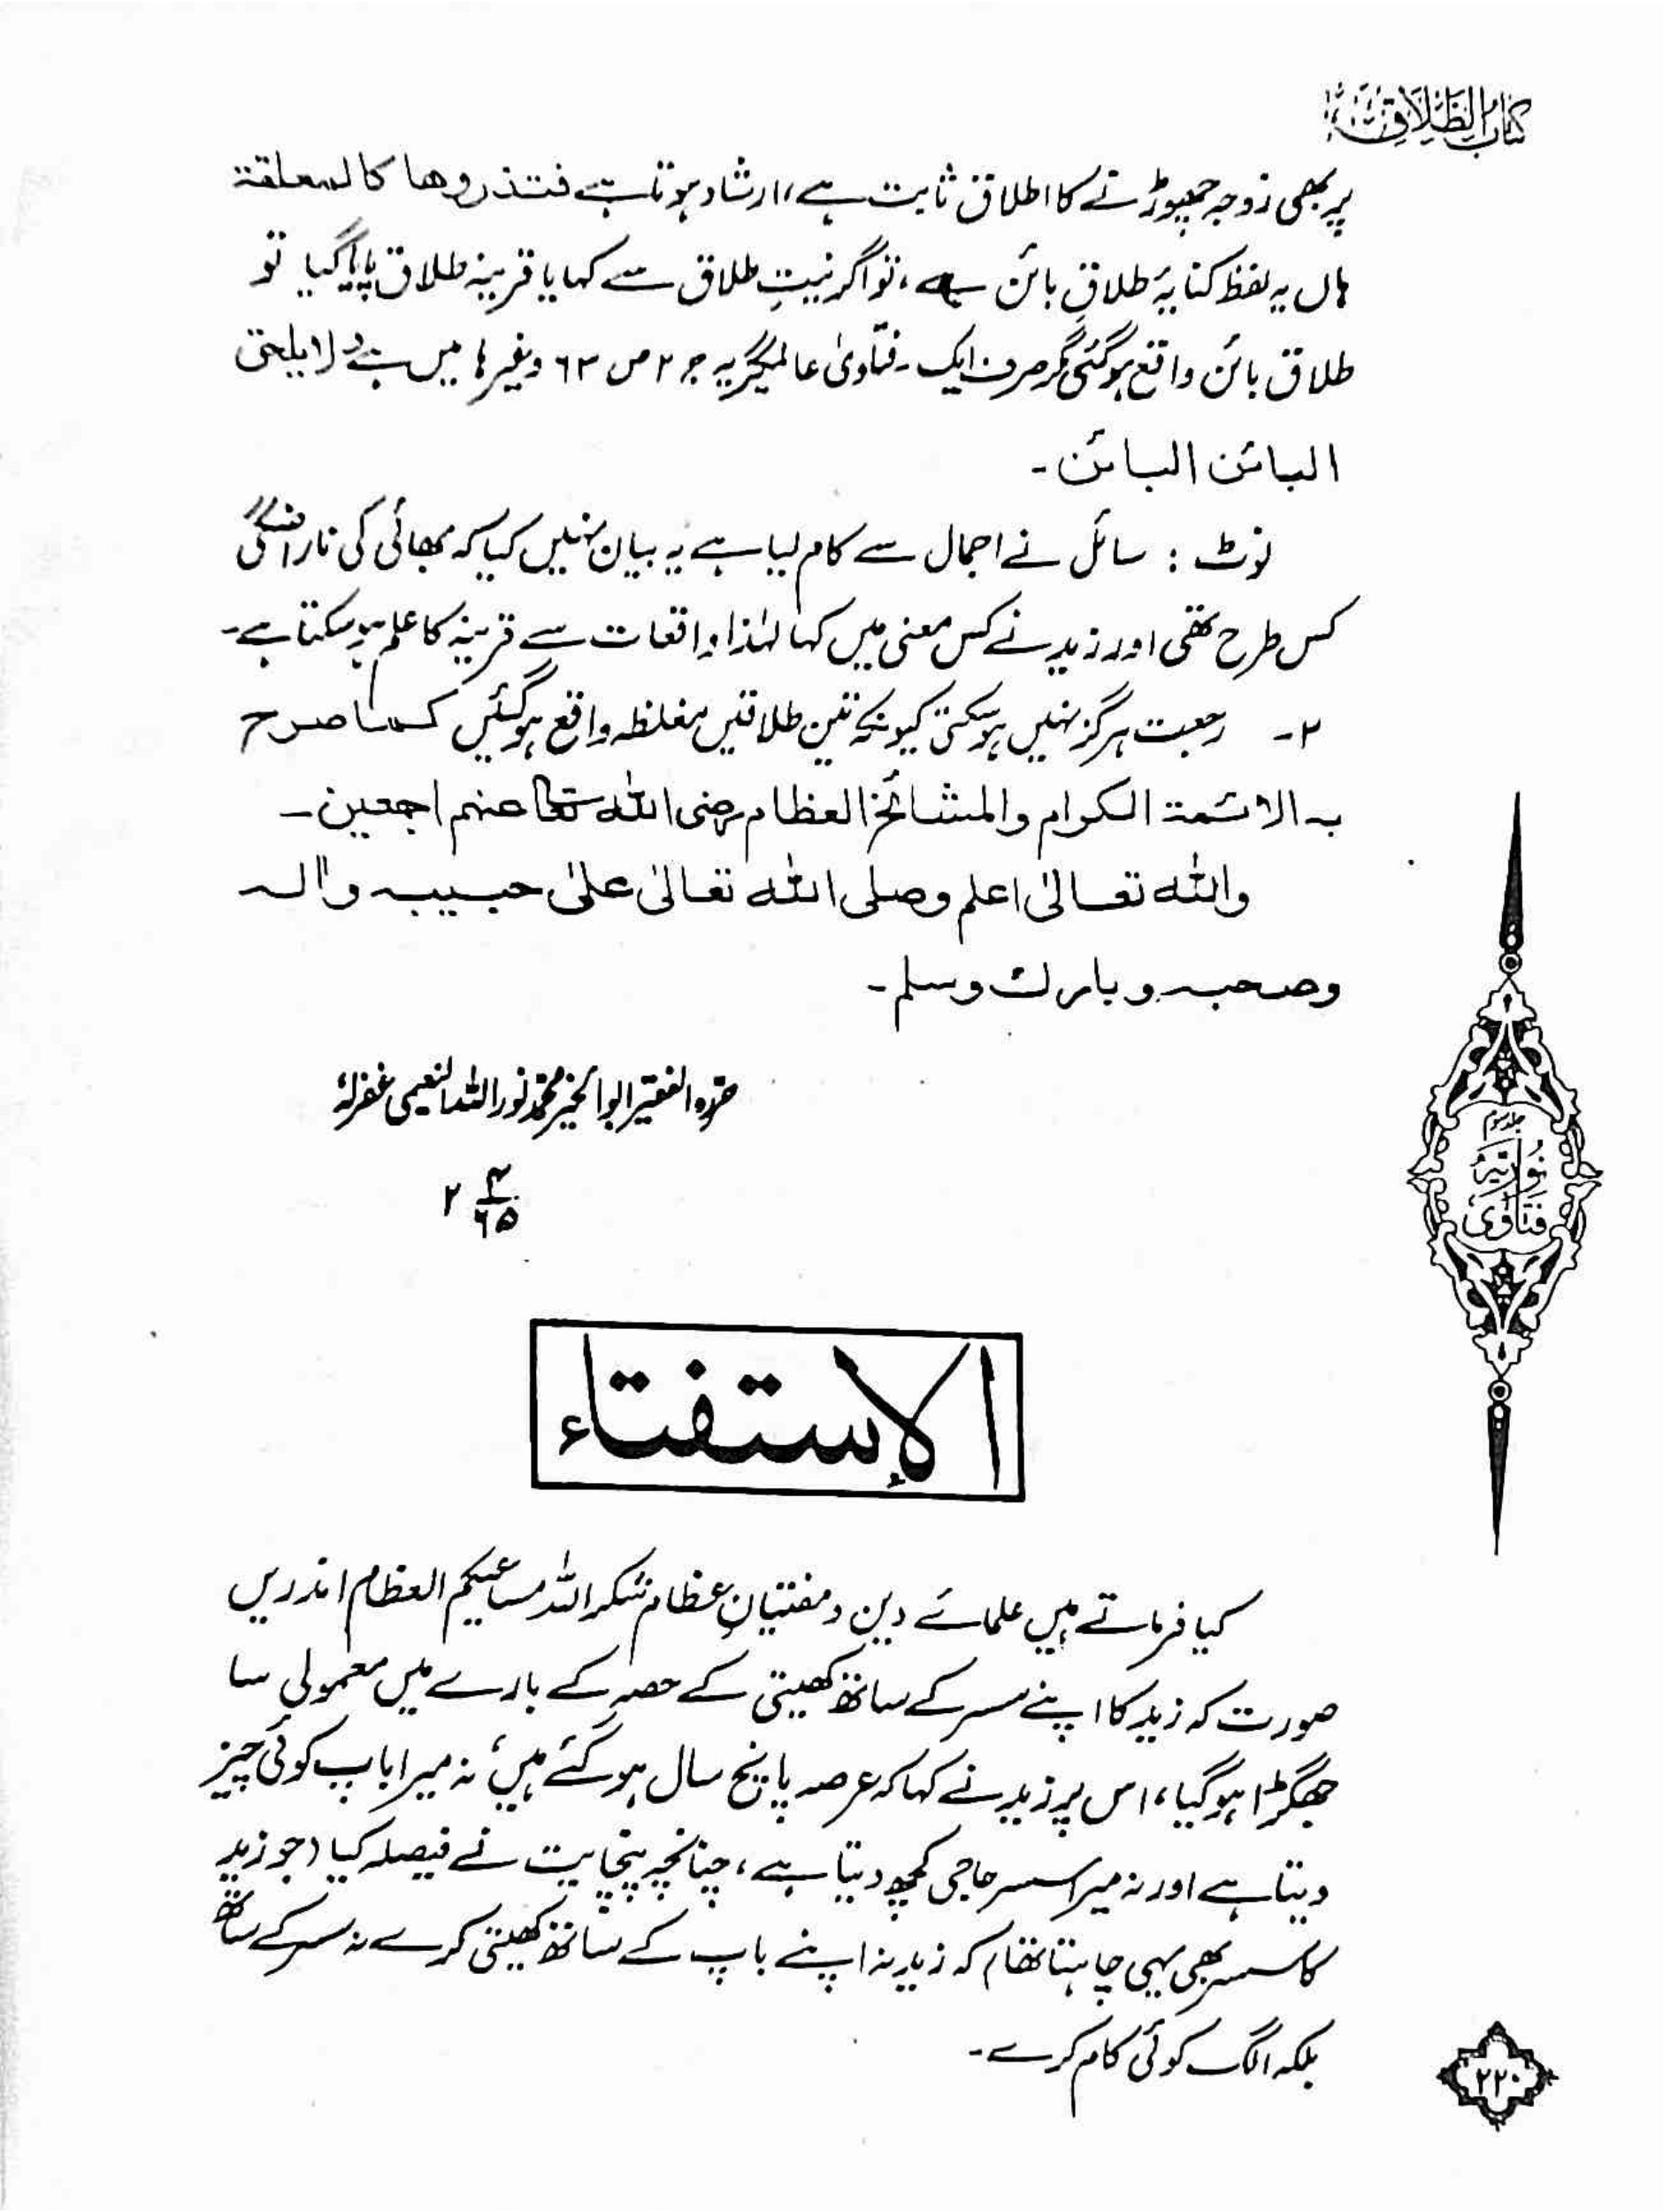 کتاب الطلاق
پر بھی زوجہ چھوڑنے کا اطلاق ثابت ہے، ارشاد ہوتا ہے فتذروھا کالمعلقۃ
ہاں یہ لفظ کنایۂ طلاقِ بائن ہے، تو اگر نیتِ طلاق سے کہا یا قرینۂ طلاق پایا گیا تو
طلاق بائن واقع ہوگئی مگر صرف ایک۔ فتاویٰ عالمگیریہ ج ۲ ص ۶۳ وغیرہا میں ہے لا یلحق
البائن البائن۔
نوٹ : سائل نے اجمال سے کام لیا ہے یہ بیان نہیں کیا کہ بھائی کی ناراضگی
کس طرح تھی اور زید نے کس معنی میں کہا لہٰذا واقعات سے قرینہ کا علم ہو سکتا ہے۔
۲۔ رجعت ہرگز نہیں ہو سکتی کیونکہ تین طلاقیں مغلظہ واقع ہوگئیں کما صرح
بہ الائمۃ الکرام والمشائخ العظام رضی اللہ تعالٰی عنہم اجمعین۔
واللہ تعالیٰ اعلم وصلی اللہ تعالیٰ علیٰ حبیبہ واٰلہ
وصحبہ وبارک وسلم۔
حررہ الفقیر ابوالخیر محمد نور اللہ النعیمی غفرلہٗ
۲ ۴/۶۵
الاستفتاء
کیا فرماتے ہیں علمائے دین و مفتیانِ عظام شکر اللہ مساعیکم العظام اندریں
صورت کہ زید کا اپنے سسر کے ساتھ کھیتی کے حصہ کے بارے میں معمولی سا
جھگڑا ہوگیا، اس پر زید نے کہا کہ عرصہ پانچ سال ہو گئے ہیں، نہ میرا باپ کوئی چیز
دیتا ہے اور نہ میرا سسر حاجی کچھ دیتا ہے، چنانچہ پنچایت نے فیصلہ کیا (جو زید
کا سسر بھی یہی چاہتا تھا) کہ زید نہ اپنے باپ کے ساتھ کھیتی کرے نہ سسر کے ساتھ
بلکہ الگ کوئی کام کرے۔
جلد سوم
فتاویٰ نوریہ
۲۲۰